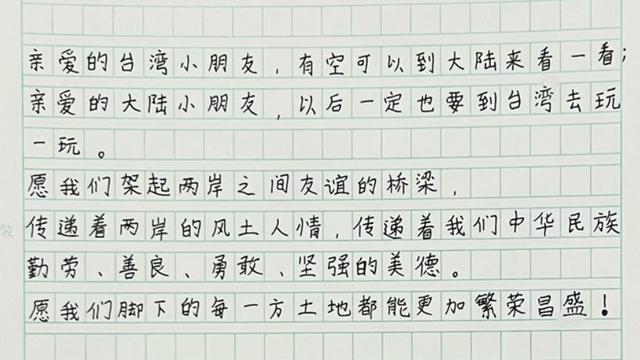 亲爱的台湾小朋友，有空可以到大陆来看一看；
亲爱的大陆小朋友，以后一定也要到台湾去玩
一玩。
愿我们架起两岸之间友谊的桥梁，
传递着两岸的风土人情，传递着我们中华民族
勤劳、善良、勇敢、坚强的美德。
愿我们脚下的每一方土地都能更加繁荣昌盛！
装